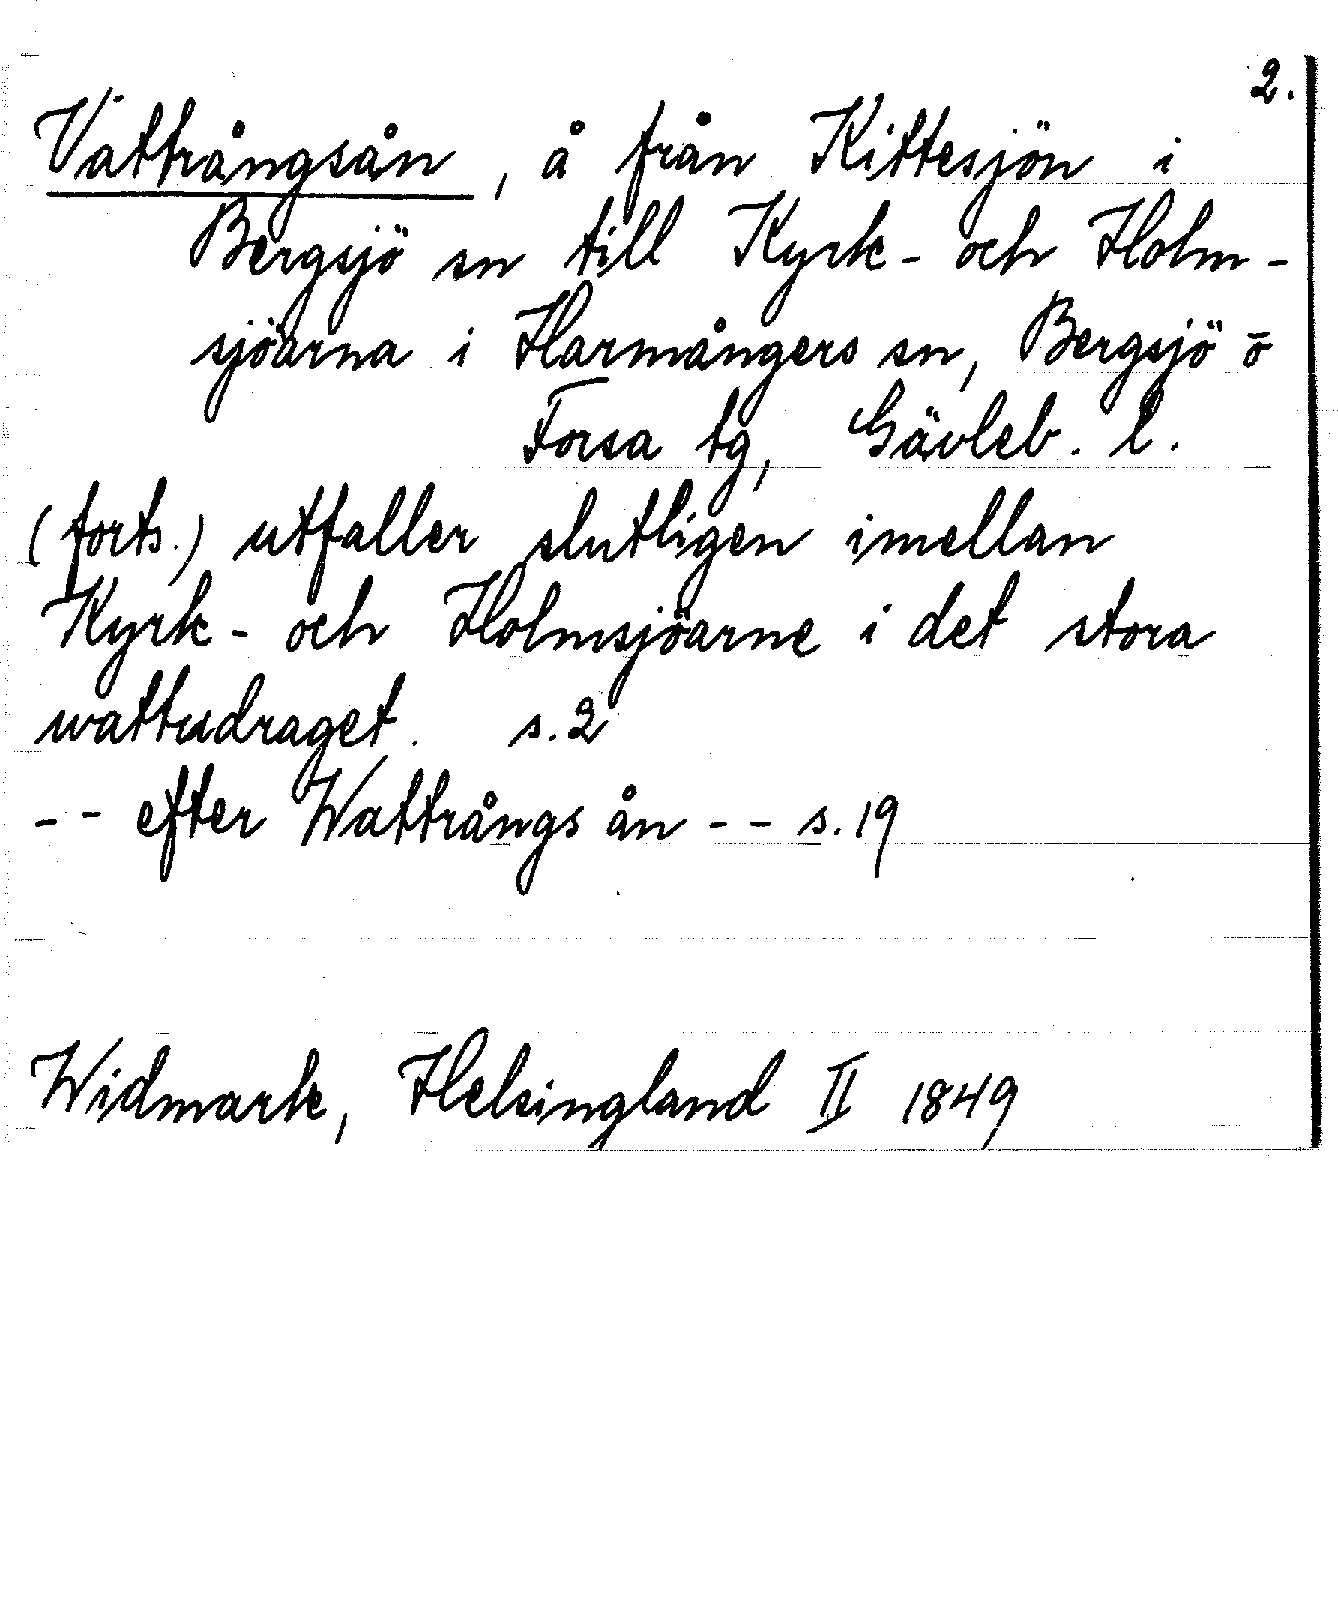 2.
Vattrångsån, å från Kittesjön i
Bergsjö sn till Kyrk- och Holm-
sjöarna i Harmångers sn, Bergsjö o
Forsa tg, Gävleb. l.
(forts.) utfaller slutligen imellan
Kyrk- och Holmsjöarne i det stora
wattudraget. s. 2
-- efter Wattrångs ån -- s. 19
Widmark, Helsingland II 1849